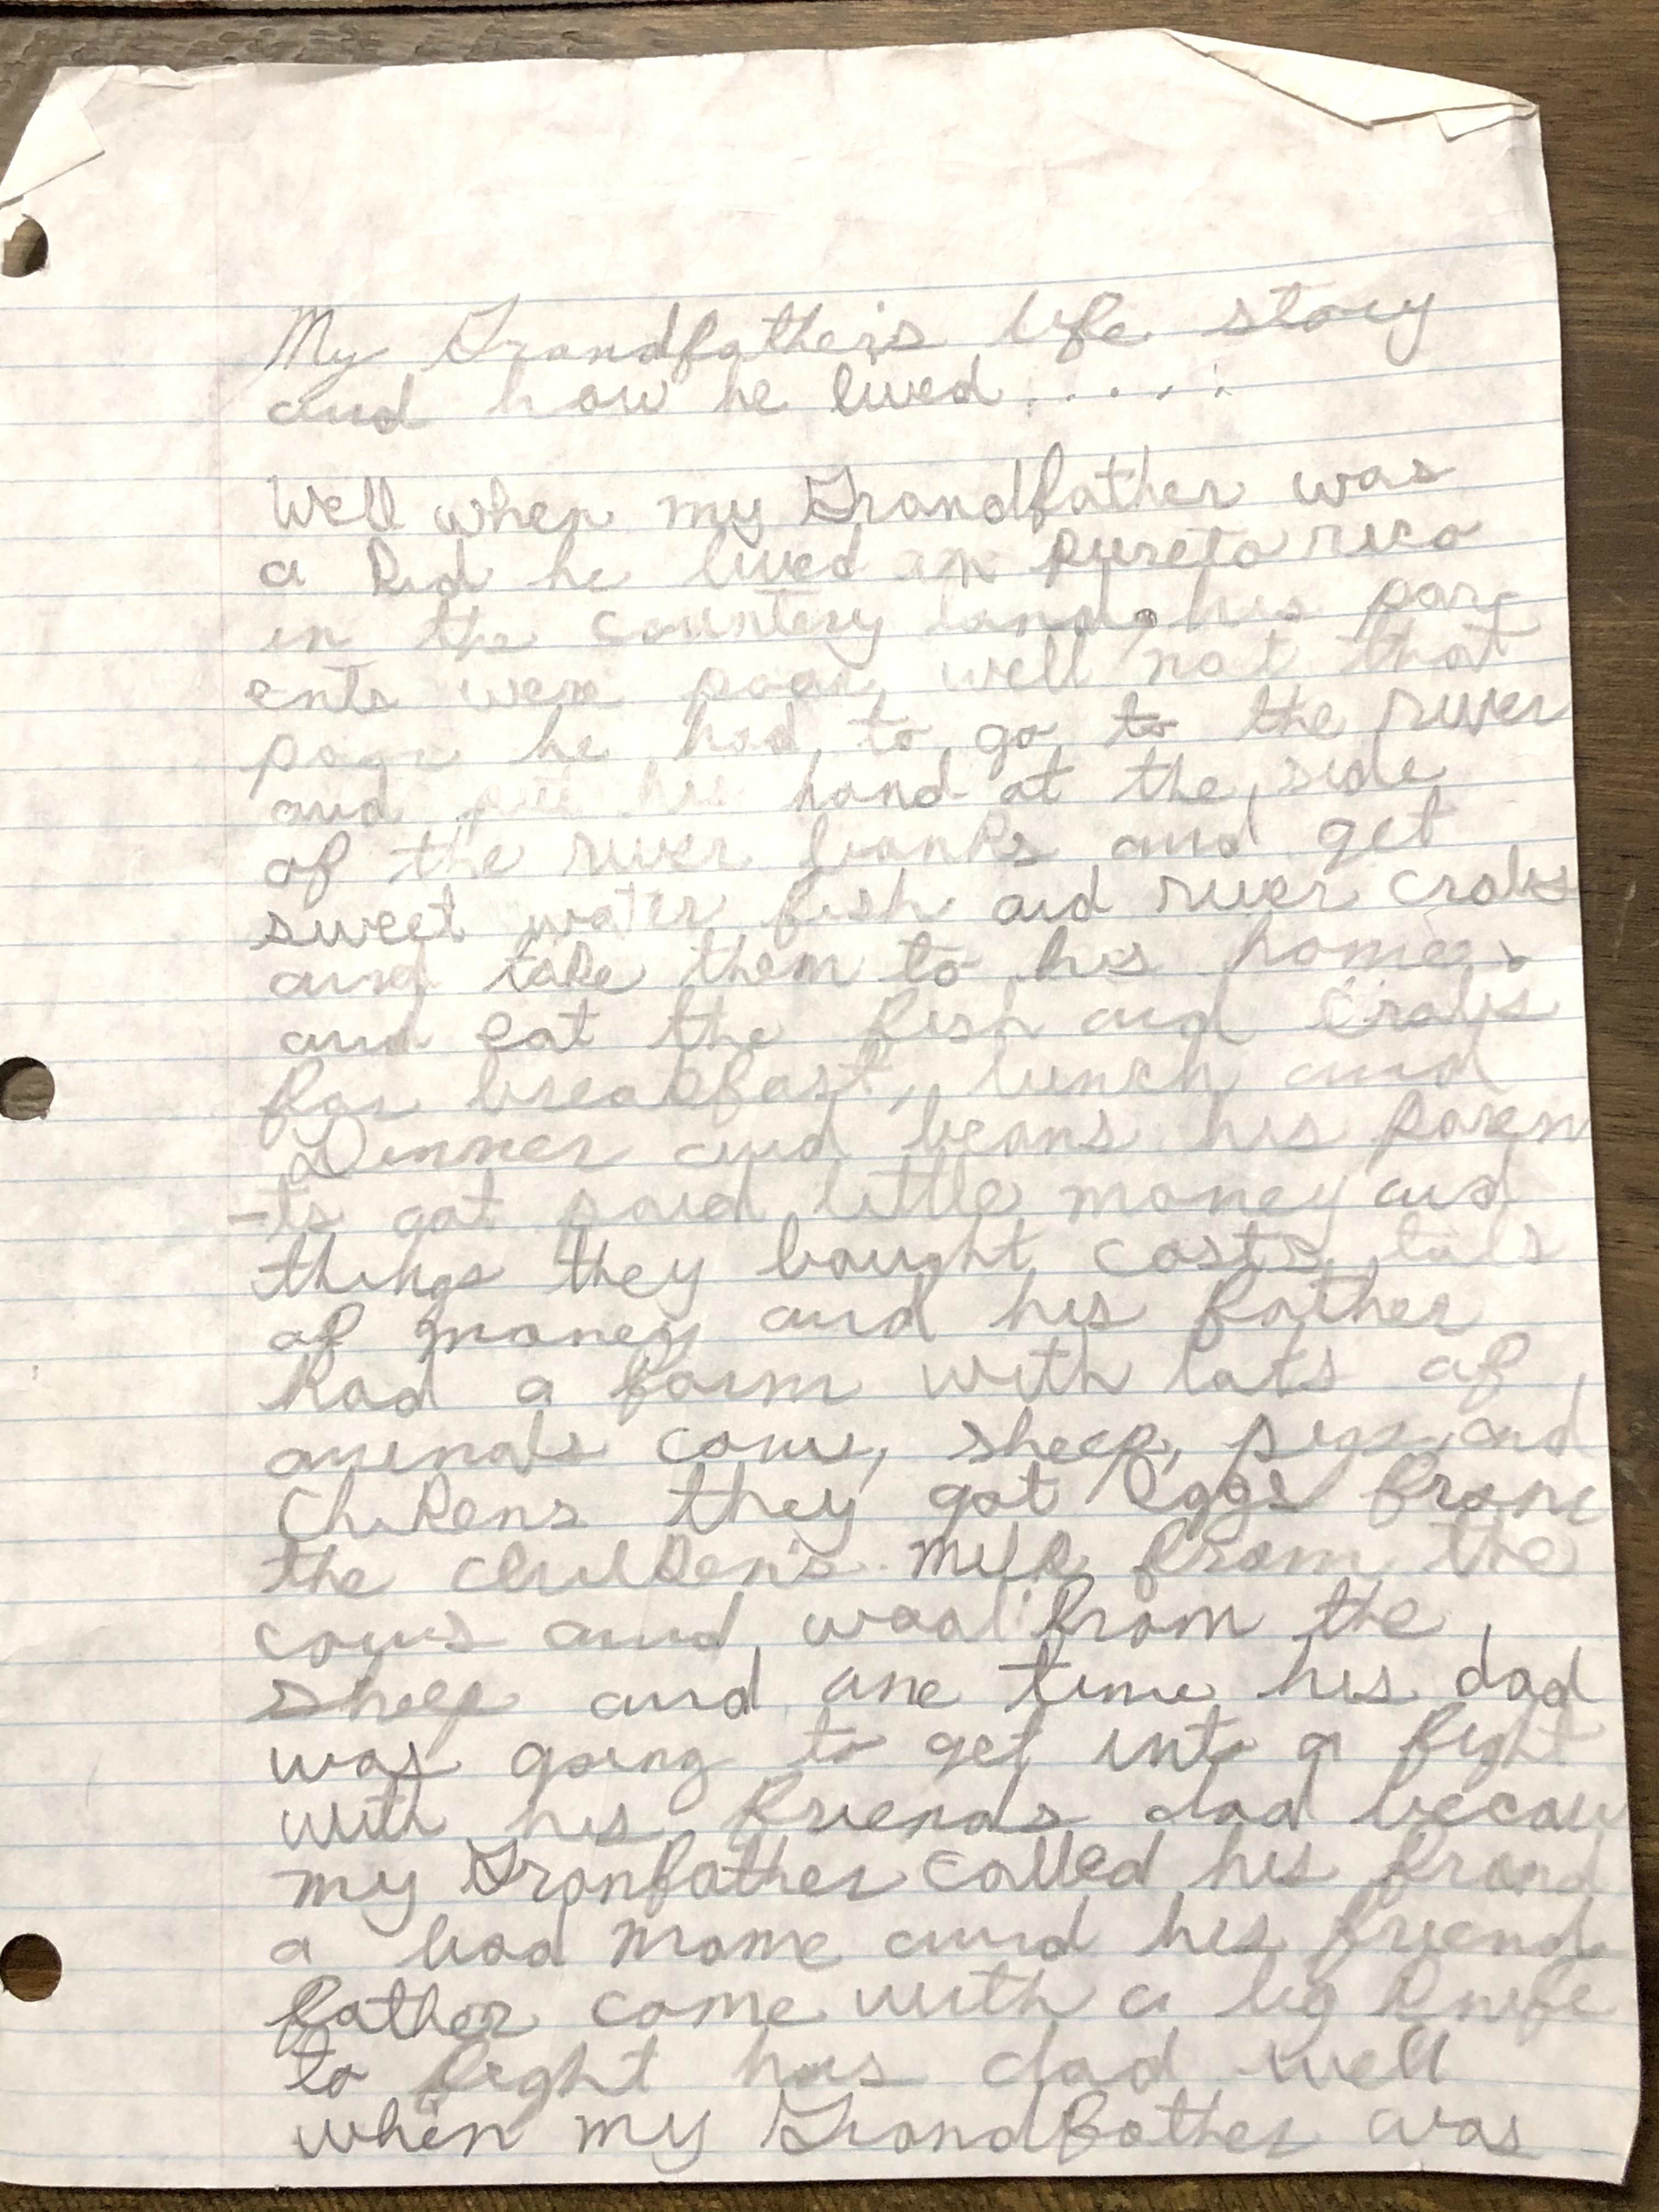 My Grandfather's life story
and how he lived.....:
Well when my Grandfather was
a kid he lived in pureto rico
in the countery land, his par-
ents were poor, well not that
poor he had to go to the river
and put his hand at the side
of the river banks and get
sweet water fish and river crabs
and take them to his home,
and eat the fish and crabs
for breakfast, lunch and
Dinner and beans his paren
-ts got paid little money and
things they bought costs
of money and his father
had a farm with lots of
animals cows, sheep, pigs, and
chikens they got eggs from
the chilken's milk from the
cows and wool from the
sheep and one time his dad
was going to get into a fight
with his friends dad becau
my Granfather called his frand
a bad mame and his friend
father come with a big knife
to fight his dad well
when my Grandfather was